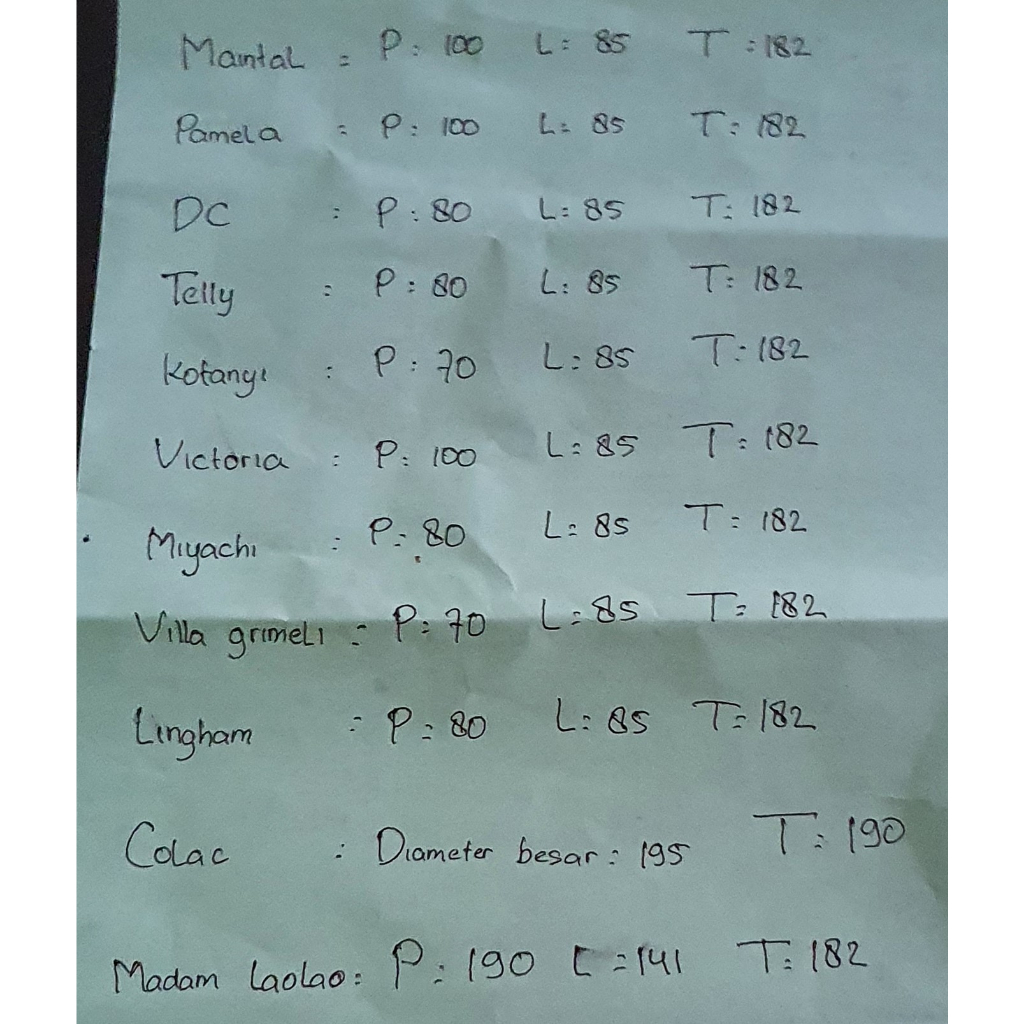 Maintal : P: 100 L: 85 T: 182
Pamela : P: 100 L: 85 T: 182
DC : P: 80 L: 85 T: 182
Telly : P: 80 L: 85 T: 182
Kotanyi : P: 70 L: 85 T: 182
Victoria : P: 100 L: 85 T: 182
Miyachi : P: 80 L: 85 T: 182
Villa grimeli : P: 70 L: 85 T: 182
Lingham : P: 80 L: 85 T: 182
Colac : Diameter besar : 195 T: 190
Madam laolao : P: 190 L: 141 T: 182